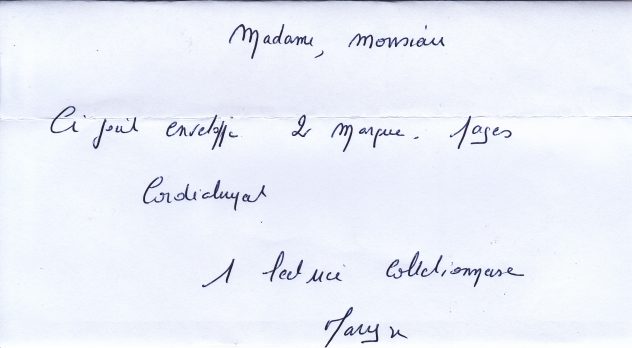 Madame, Monsieur
Ci joint enveloppe 2 Marque-pages
Cordialement
1 lectrice collectionneuse